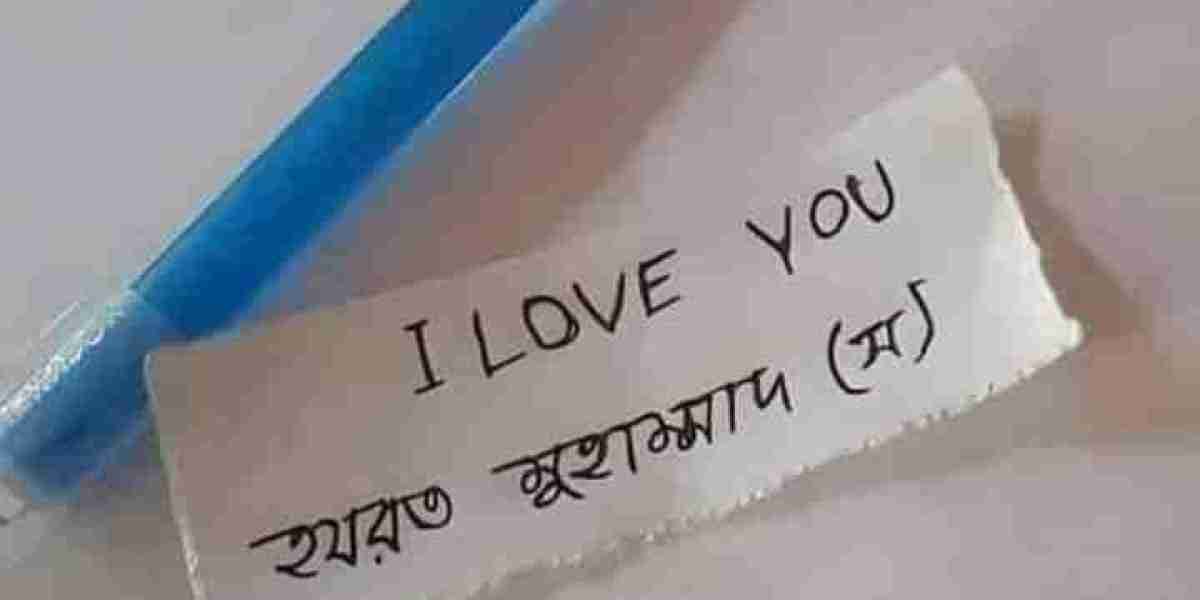 I LOVE YOU
হযরত মুহাম্মাদ (স)